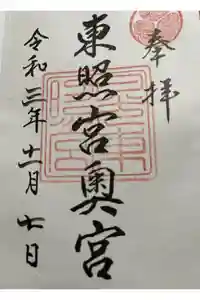 奉拝
東照宮奥宮
令和三年十一月七日